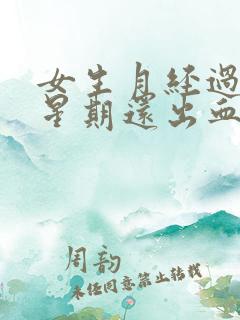 女生月经過
星期還出血
周韵
未经同意禁止转载